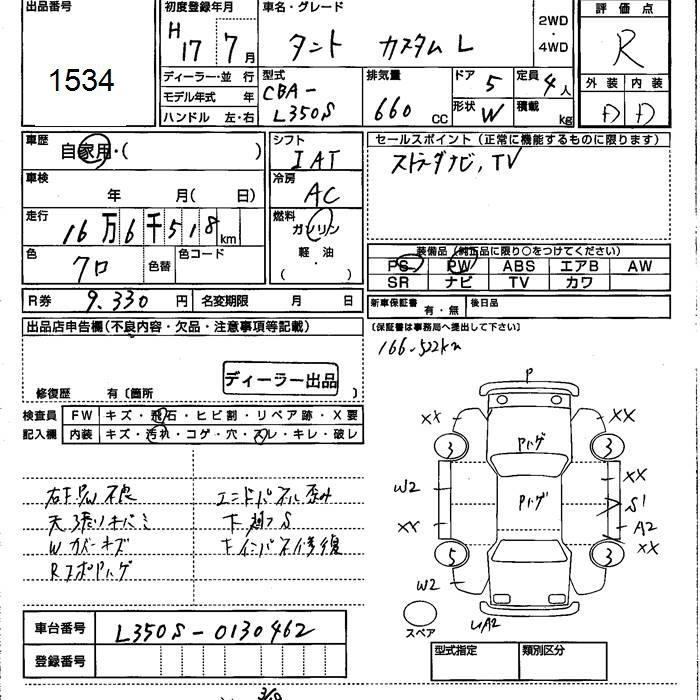 出品番号
1534
初度登録年月
H 17 7月
ディーラー・並 行
モデル年式 年
ハンドル 左・右
車名・グレード
タント カスタム L
2WD
・
4WD
型式
CBA-
L350S
排気量
660 CC
ドア 5
形状 W
定員 4人
積載 kg
評価点
R
外装 内装
D D
車歴
自家用・( )
車検
年 月( 日)
走行
16万6千518km
色
クロ
色替
色コード
シフト
IAT
冷房
AC
燃料
ガソリン
軽・油
( )
セールスポイント(正常に機能するものに限ります)
ストラーダナビ, TV
装備品(純正品に限り○をつけてください)
PS PW ABS エアB AW
SR ナビ TV カワ
R券 9,330円 名変期限 月 日
新車保証書 有・無 後日品
(保証書は事務局へ提出して下さい)
166-522km
出品店申告欄(不良内容・欠品・注意事項等記載)
ディーラー出品
修復歴 有〔箇所 〕
検査員 FW キズ・飛石・ヒビ割・リペア跡・X要
記入欄 内装 キズ・汚れ・コゲ・穴・スレ・キレ・破レ
右下PW不良
エンドパネル歪み
W カバーキズ
Rスポハゲ
P
XX XX
3 3
Pハゲ
W2 Pハゲ XX
S1
XX A2
XX
5 3
W2 W2
A2
スペア
車台番号 L350S-0130462
登録番号
型式指定 類別区分